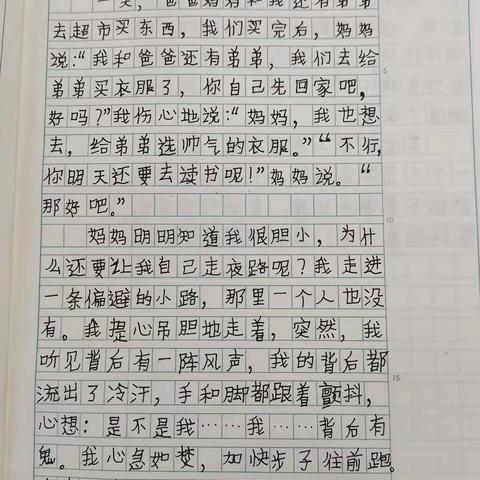 一天，爸爸妈妈和我还有弟弟
去超市买东西，我们买完后，妈妈
说：“我和爸爸还有弟弟，我们去给
弟弟买衣服了，你自己先回家吧，
好吗？”我伤心地说：“妈妈，我也想
去，给弟弟选帅气的衣服。”“不行，
你明天还要去读书呢！”妈妈说。“
那好吧。”
妈妈明明知道我很胆小，为什
么还要让我自己走夜路呢？我走进
一条偏避的小路，那里一个人也没
有。我提心吊胆地走着，突然，我
听见背后有一阵风声，我的背后都
流出了冷汗，手和脚都跟着颤抖，
心想：是不是我……我……背后有
鬼。我心急如焚，加快步子往前跑。